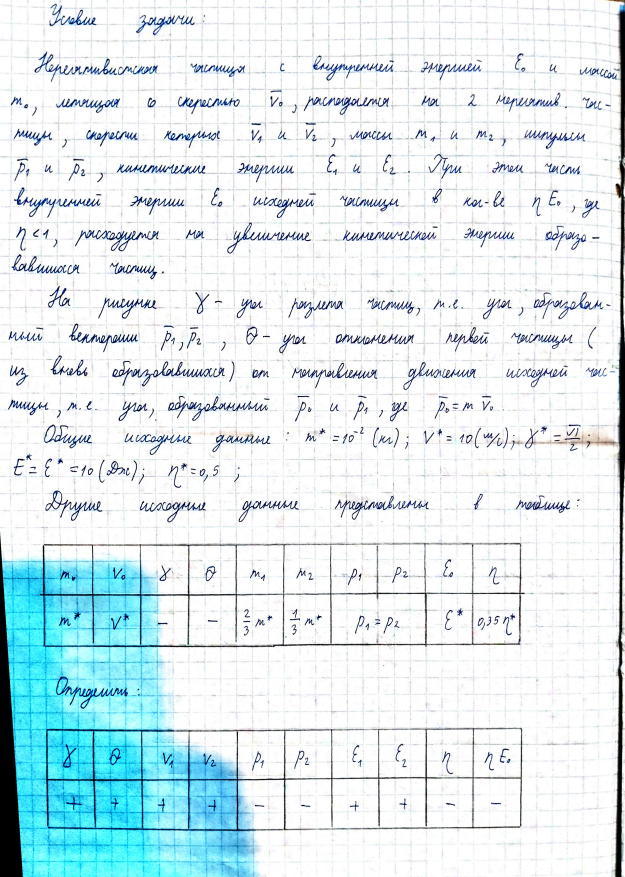 Условие задачи:
Нерелятивистская частица с внутренней энергией E₀ и массой
m₀, летящая со скоростью v̅₀, распадается на 2 нерелятив. час-
тицы, скорости которых v̅₁ и v̅₂, массы m₁ и m₂, импульсы
p̅₁ и p̅₂, кинетические энергии ℰ₁ и ℰ₂. При этом часть
внутренней энергии E₀ исходной частицы в кол-ве η E₀, где
η<1, расходуется на увеличение кинетической энергии образо-
вавшихся частиц.
На рисунке γ - угол разлета частиц, т.е. угол, образован-
ный векторами p̅₁, p̅₂, θ - угол отклонения первой частицы (
из вновь образовавшихся) от направления движения исходной час-
тицы, т.е. угол, образованный p̅₀ и p̅₁, где p̅₀ = m v̅₀.
Общие исходные данные: m* = 10⁻² (кг); V* = 10 (м/с); γ* = π/2;
E* = ℰ* = 10 (Дж); η* = 0,5;
Другие исходные данные представлены в таблице:
m₀ V₀ γ θ m₁ m₂ p₁ p₂ ℰ₀ η
m* V* - - 2/3 m* 1/3 m* p₁ = p₂ ℰ* 0,35 η*
Определить:
γ θ V₁ V₂ p₁ p₂ ℰ₁ ℰ₂ η η E₀
+ + + + - - + + - -